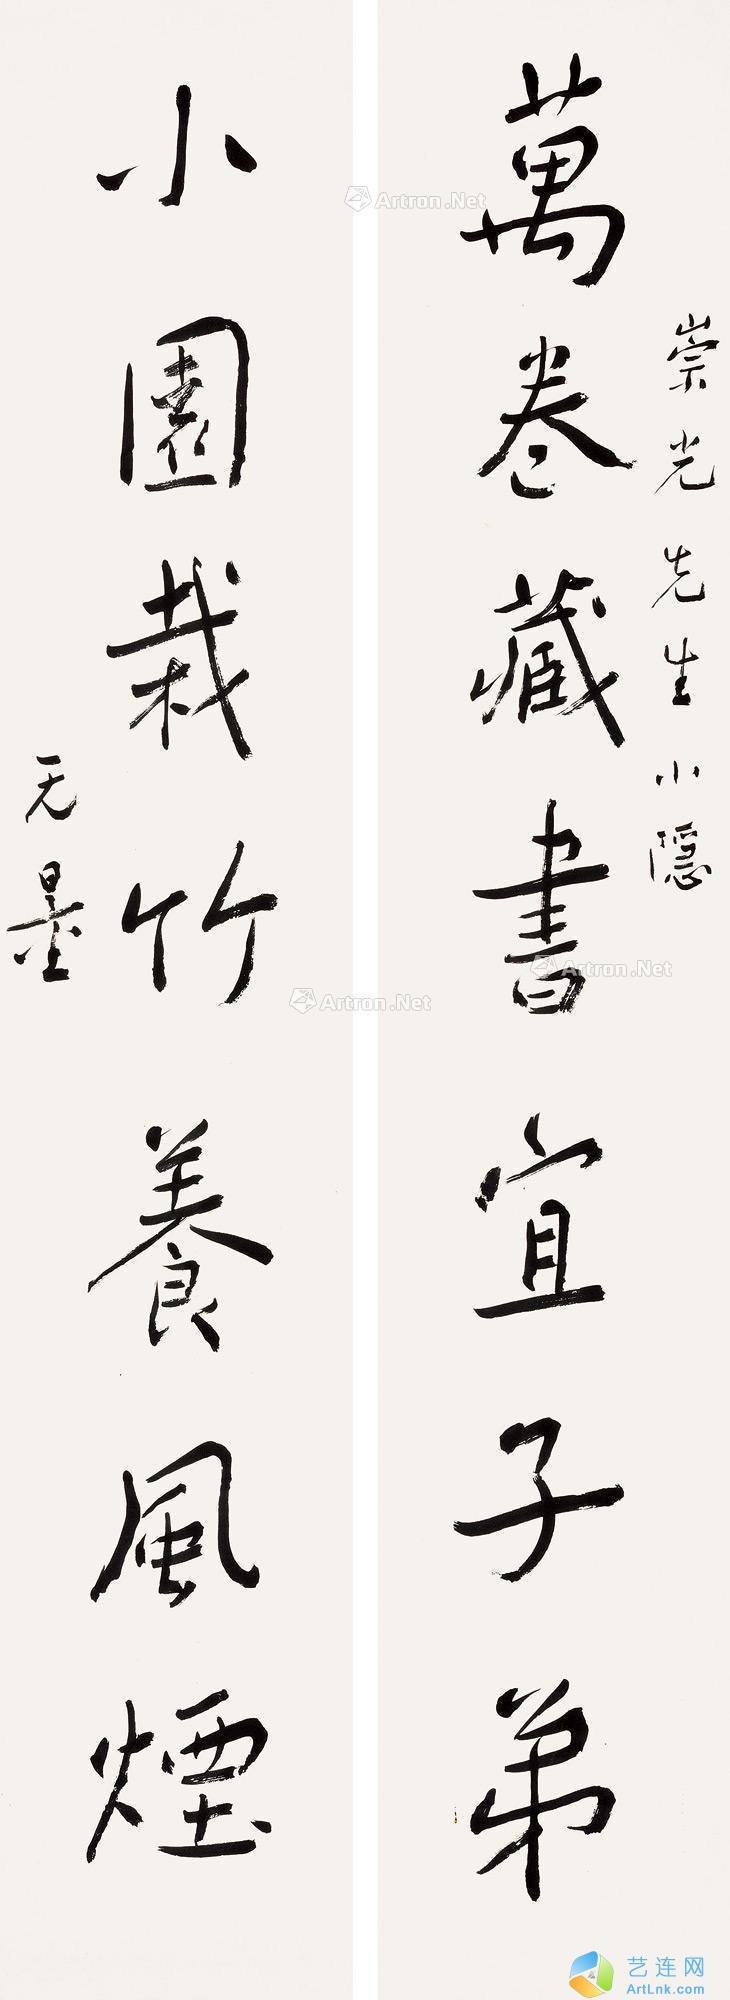 萬卷藏書宜子弟
崇光先生小隱
小園栽竹養風煙
无量
Artron.Net
Artron.Net
Artron.Net
艺连网
ArtLnk.com